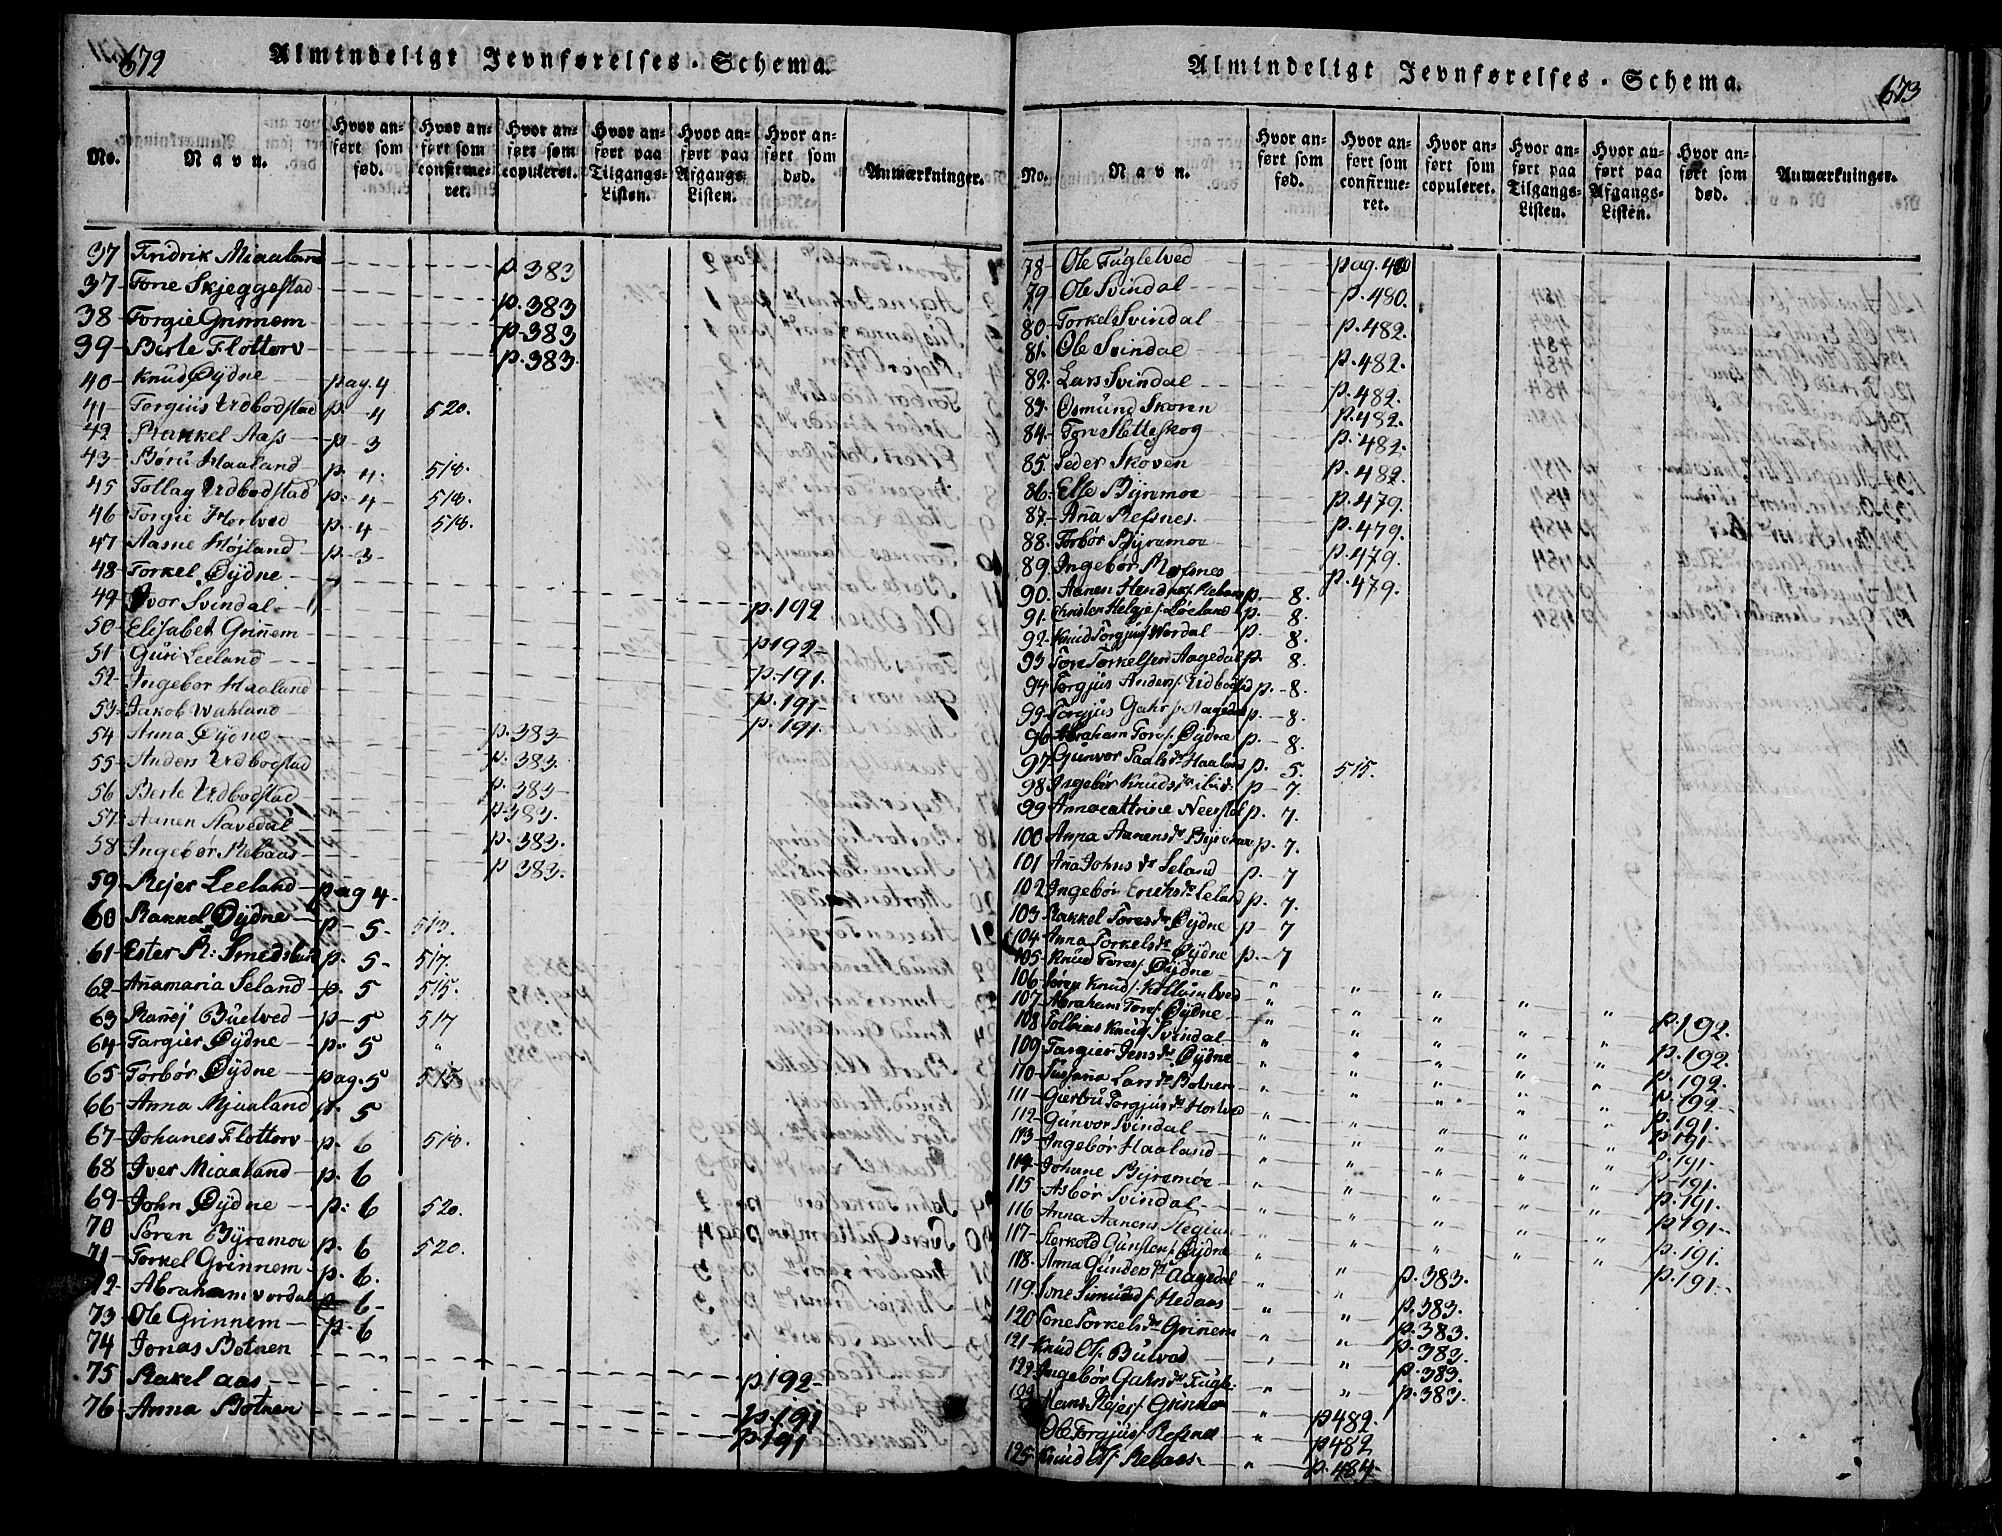 672
Almindeligt Jevnførelses-Schema.
No. | Navn. | Hvor anført som fød. | Hvor anført som confirmeret. | Hvor anført som copuleret. | Hvor anført paa Tilgangs-Listen. | Hvor anført paa Afgangs-Listen. | Hvor anført som død. | Anmærkninger.
37 Fridrik Miaaland p. 383
37 Tone Skjeggestad p. 383
38 Torgie Grinnem p. 383
39 Berte Flottorv p. 383
40 Knud Øydne pag. 4
41 Torgius Udbodstad p. 4 520.
42 Rakkel Aass p. 3
43 Børu Haaland p. 4. 518.
45 Tollag Udbodstad p. 4 518.
46 Torgie Hortved p. 4 518.
47 Aasne Højland p. 3
48 Torkel Øydne
49 Ivor Svindal p. 192
50 Elisabet Grinnem p. 192
51 Guri Leeland p. 191.
52 Ingebor Haaland p. 191
53 Jakob Wahland p. 191.
54 Anna Øydne p. 383
55 Anders Udbogstad p. 383.
56 Berte Udbodstad p. 383
57 Aanen Navedal p. 383.
58 Ingebor Rebaas p. 383.
p. 383.
59 Rejer Leeland pag 4
60 Rakkel Øydne p. 5 513.
61 Ester R: p. 5 517.
62 Annamaria Seland p. 5 515.
63 Rannej Buelved p. 5 517
64 Targier Øydne p. 5 "
65 Torbor Øydne pag. 5 515
66 Anna Mjaaland p. 5
67 Johanes Flottorv p. 6 518.
68 Iver Miaaland p. 6
69 John Øydne p. 6 520.
70 Søren Byremoe p. 6 520.
71 Torkel Grinnem p. 6.
72 Abraham Vordal p. 6
73 Ole Grinnem p. 6
74 Jonas Botnen p. 192
75 Rakel aas p. 191
76 Anna Botnen p. 191
673
Almindeligt Jevnførelses-Schema.
No. | Navn. | Hvor anført som fød. | Hvor anført som confirmeret. | Hvor anført som copuleret. | Hvor anført paa Tilgangs-Listen. | Hvor anført paa Afgangs-Listen. | Hvor anført som død. | Anmærkninger.
78 Ole Fuglelved pag. 480
79 Ole Svindal p. 480.
80 Torkel Svindal p. 482.
81. Ole Svindal p. 482.
82. Lars Svindal p. 482.
83. Osmund Skoven p. 482.
84. Tore Sletteskog p. 482.
85. Peder Skoven p. 482.
86. Else Byremoe p. 479.
87. Anna Refsnes p. 479.
88. Torbor Byremoe p. 479.
89 Ingebor Refsnes p. 479.
90. Aanen p. 8.
91. Christen Helgjes. Leeland p. 8.
92. Knud Torgjus. Vordal p. 8.
93 Tore Torkelsen Aagedal p. 8.
94 Torgjus Anders. Udbodstad p. 8.
95 Torgjus Aagedal p. 8.
96 Abraham Tores. Øydne p. 8.
97 Gunvor Paalsdr Haaland p. 5. 515.
98 Ingebor Knudsdr p. 7.
99 Annacattrine p. 7.
100 Anna Aanensdr p. 7.
101 Anna Johnsdr Seland p. 7
102 Ingebor Erichsdr Leland p. 7.
103 Rakkel Toresdr Øydne p. 7
104 Anna Torkelsdr Øydne p. 7
105 Knud Tores. Øydne p. 192.
106 Søren Knuds. p. 192.
107 Abraham Tores. Øydne p. 192.
108 Tolbias Knuds. Svindal p. 192
109 Targier Jensdr Øydne p. 191.
110 Susanna Larsdr Botnen p. 191
111 Giertru Torgjusdr Hortved p. 191.
112 Gunvor Svindal p. 191.
113 Ingebor Haaland p. 191.
114 Johane Byremoe p. 191
115 Asbor Svindal p. 191.
116 Anna Aanens p. 191.
117 Sterkold Gunstens. Øydne p. 383.
118. Anna Gundersdr Aagedal p. 383.
119 Tone Simunds. Hedaas p. 383.
120 Tone Torkelsdr Grinnem p. 383.
121 Knud Ols. Bulved p. 383.
122 Ingebor p. 383.
Hans Rejers. Grinnem p 482.
Ole Torgjus. Refsnes p 482
125 Knud Ols. Rebaas p. 484.